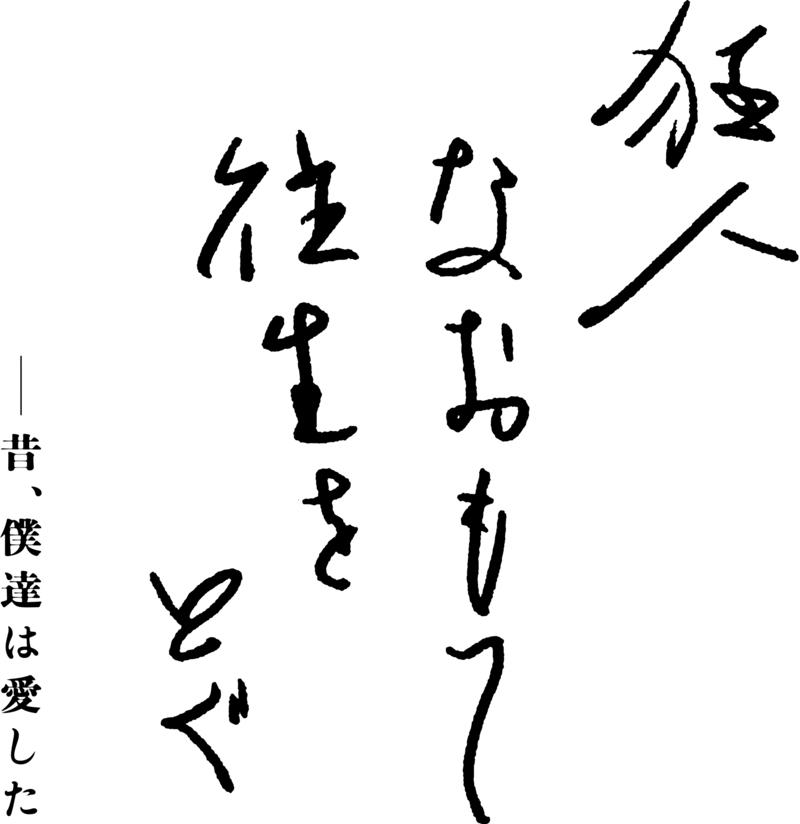 狂人
なおもて
往生を
とぐ
──昔、僕達は愛した